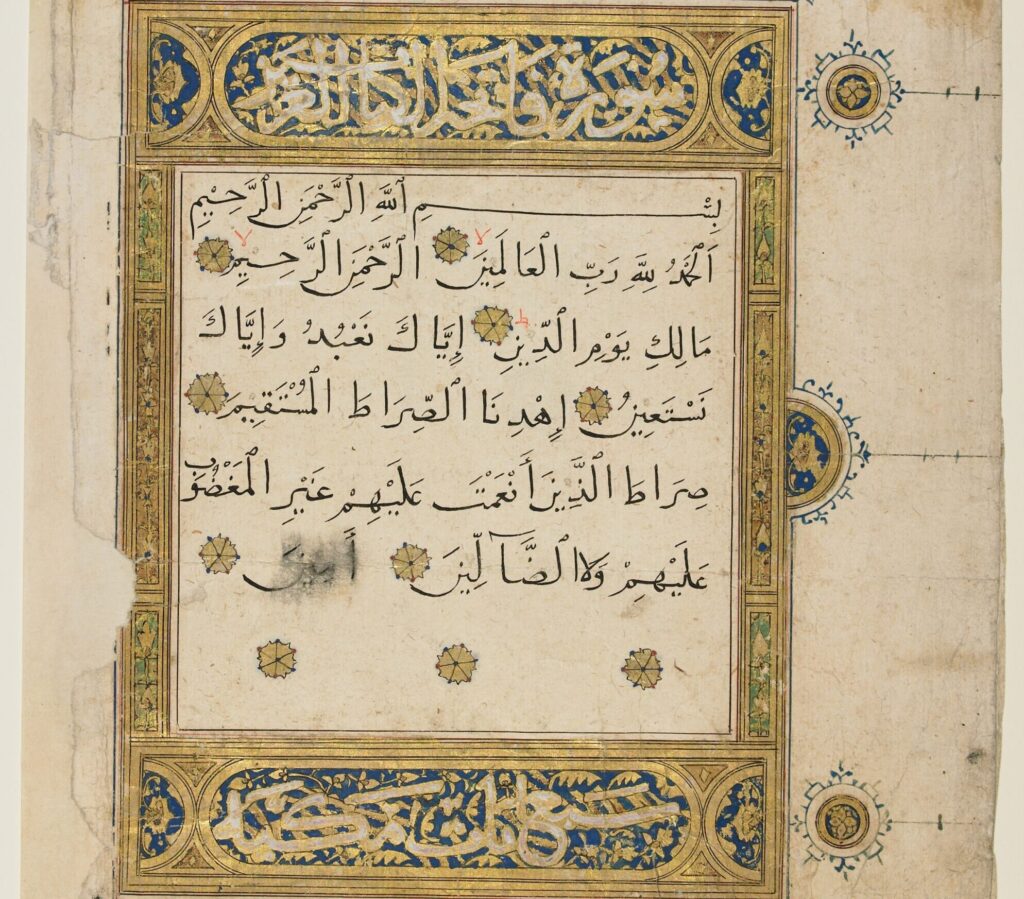 سورة فاتحة الكتاب العزيز
بِسْمِ اللَّهِ الرَّحْمَنِ الرَّحِيْمِ
اَلْحَمْدُ لِلَّهِ رَبِّ الْعَالَمِيْنَ لا الرَّحْمَنِ الرَّحِيْمِ لا
مَالِكِ يَوْمِ الدِّيْنِ ط إِيَّاكَ نَعْبُدُ وَإِيَّاكَ
نَسْتَعِيْنُ إِهْدِنَا الصِّرَاطَ الْمُسْتَقِيْمَ
صِرَاطَ الَّذِيْنَ أَنْعَمْتَ عَلَيْهِمْ غَيْرِ الْمَغْضُوْبِ
عَلَيْهِمْ وَلَا الضَّآلِّيْنَ أَمِيْنَ
سبع آيات مكية